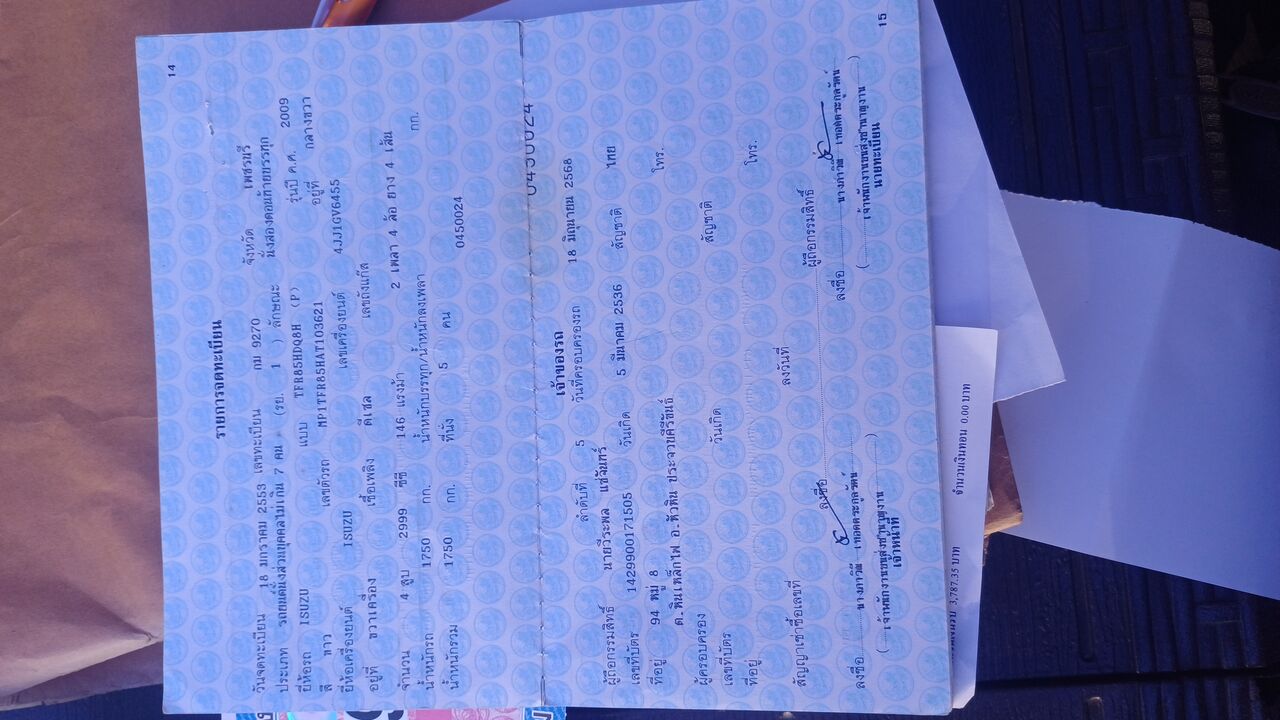 14
รายการจดทะเบียน
วันจดทะเบียน 18 มกราคม 2553 เลขทะเบียน กม 9270 จังหวัด เพชรบุรี
ประเภท รถยนต์นั่งส่วนบุคคลไม่เกิน 7 คน (รย. 1 ) ลักษณะ นั่งสองตอนท้ายบรรทุก
ยี่ห้อรถ ISUZU แบบ TFR85HDQ8H (P) รุ่นปี ค.ศ. 2009
สี ขาว เลขตัวรถ MP1TFR85HAT103621 อยู่ที่ กลางขวา
ยี่ห้อเครื่องยนต์ ISUZU เลขเครื่องยนต์ 4JJ1GV6455
อยู่ที่ ขวาเครื่อง เชื้อเพลิง ดีเซล เลขถังแก๊ส
จำนวน 4 สูบ 2999 ซีซี 146 แรงม้า 2 เพลา 4 ล้อ ยาง 4 เส้น
น้ำหนักรถ 1750 กก. น้ำหนักบรรทุก/น้ำหนักลงเพลา กก.
น้ำหนักรวม 1750 กก. ที่นั่ง 5 คน 0450024
0450024
เจ้าของรถ
ลำดับที่ 5 วันที่ครอบครองรถ 18 มิถุนายน 2568
ผู้ถือกรรมสิทธิ์ นายวีระพล แซ่จันทร์
เลขที่บัตร 1429900171505 วันเกิด 5 มีนาคม 2536 สัญชาติ ไทย
ที่อยู่ 94 หมู่ 8 โทร.
ต.หินเหล็กไฟ อ.หัวหิน ประจวบคีรีขันธ์
ผู้ครอบครอง
เลขที่บัตร วันเกิด สัญชาติ
ที่อยู่ โทร.
สัญญาเช่าซื้อเลขที่ ลงวันที่
ลงชื่อ ผู้ถือกรรมสิทธิ์
ลงชื่อ ลงชื่อ
เจ้าหน้าที่ นายทะเบียน
15
3,787.35 บาท จำนวนเงินทอน 0.00 บาท